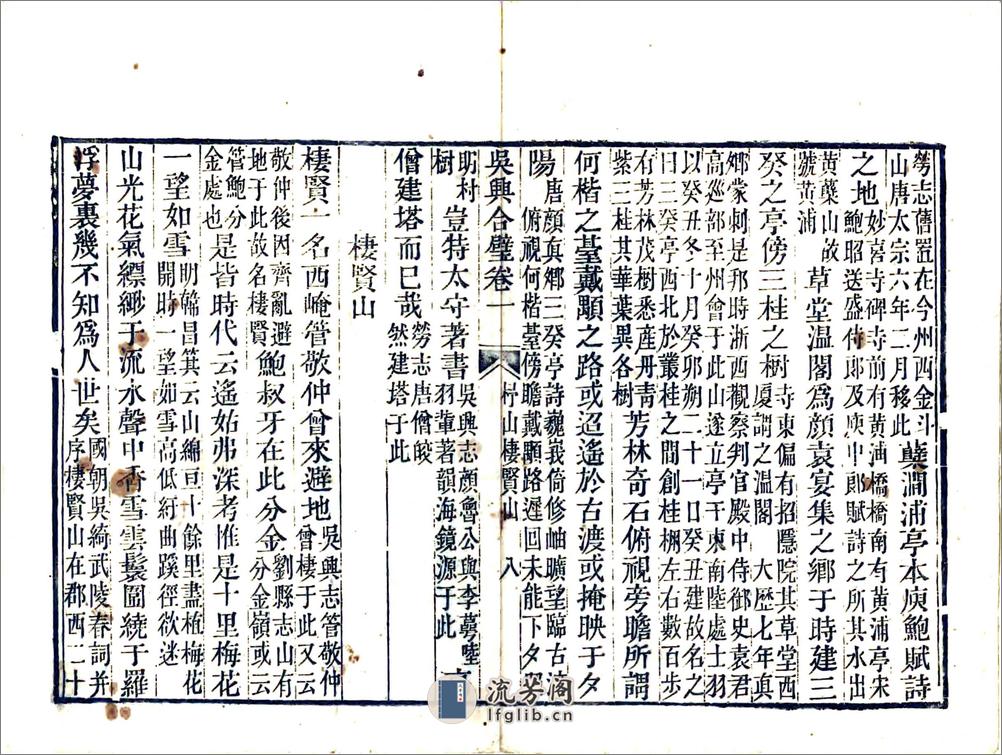 勞志舊置在今州西金斗山唐太宗六年二月移此蘖澗浦亭本庾鮑賦詩
之地妙喜寺碑寺前有黃浦橋橋南有黃浦亭宋鮑昭送盛侍郎及庾中郎賦詩之所其水出
黃蘗山故號黃浦草堂溫閣爲顏袁宴集之鄉于時建三
癸之亭傍三桂之樹寺東偏有招隱院其草堂西厦謂之溫閣 大歷七年真
鄉蒙刺是邦時浙西觀察判官殿中侍御史袁君高巡部至州會于此山遂立亭于東南陸處士羽
以癸丑冬十月癸卯朔二十一日癸丑建故名之曰三癸亭西北於叢桂之間創桂棚左右數百步
有芳林茂樹悉産丹青紫三桂其華葉異各樹芳林奇石俯視旁瞻所謂
何楷之臺戴顒之路或迢遙於古渡或掩映于夕
陽唐顏真鄉三癸亭詩巍峩倚修岫曠望臨古渡俯視何楷臺傍瞻戴顒路遲回未能下夕
吳興合璧卷一 杼山棲賢山 八
明村樹豈特太守著書吳興志顏魯公與李萼陸羽輩著韻海鏡源于此
僧建塔而已哉勞志唐僧皎然建塔于此
棲賢山
棲賢一名西崦管敬仲曾來避地吳興志管敬仲曾棲于此又云
敬仲後因齊亂避地于此故名棲賢鮑叔牙在此分金劉縣志山有分金嶺或云
管鮑分金處也是皆時代云遙姑弗深考惟是十里梅花
一望如雪明韓昌箕云山綿亘十餘里盡植梅花開時一望如雪高低紆曲蹊徑欲迷
山光花氣縹緲于流水聲中香雪雲鬟圍繞于羅
浮夢裏幾不知爲人世矣國朝吳綺武陵春詞并序棲賢山在郡西二十
流芳阁
lfglib.cn